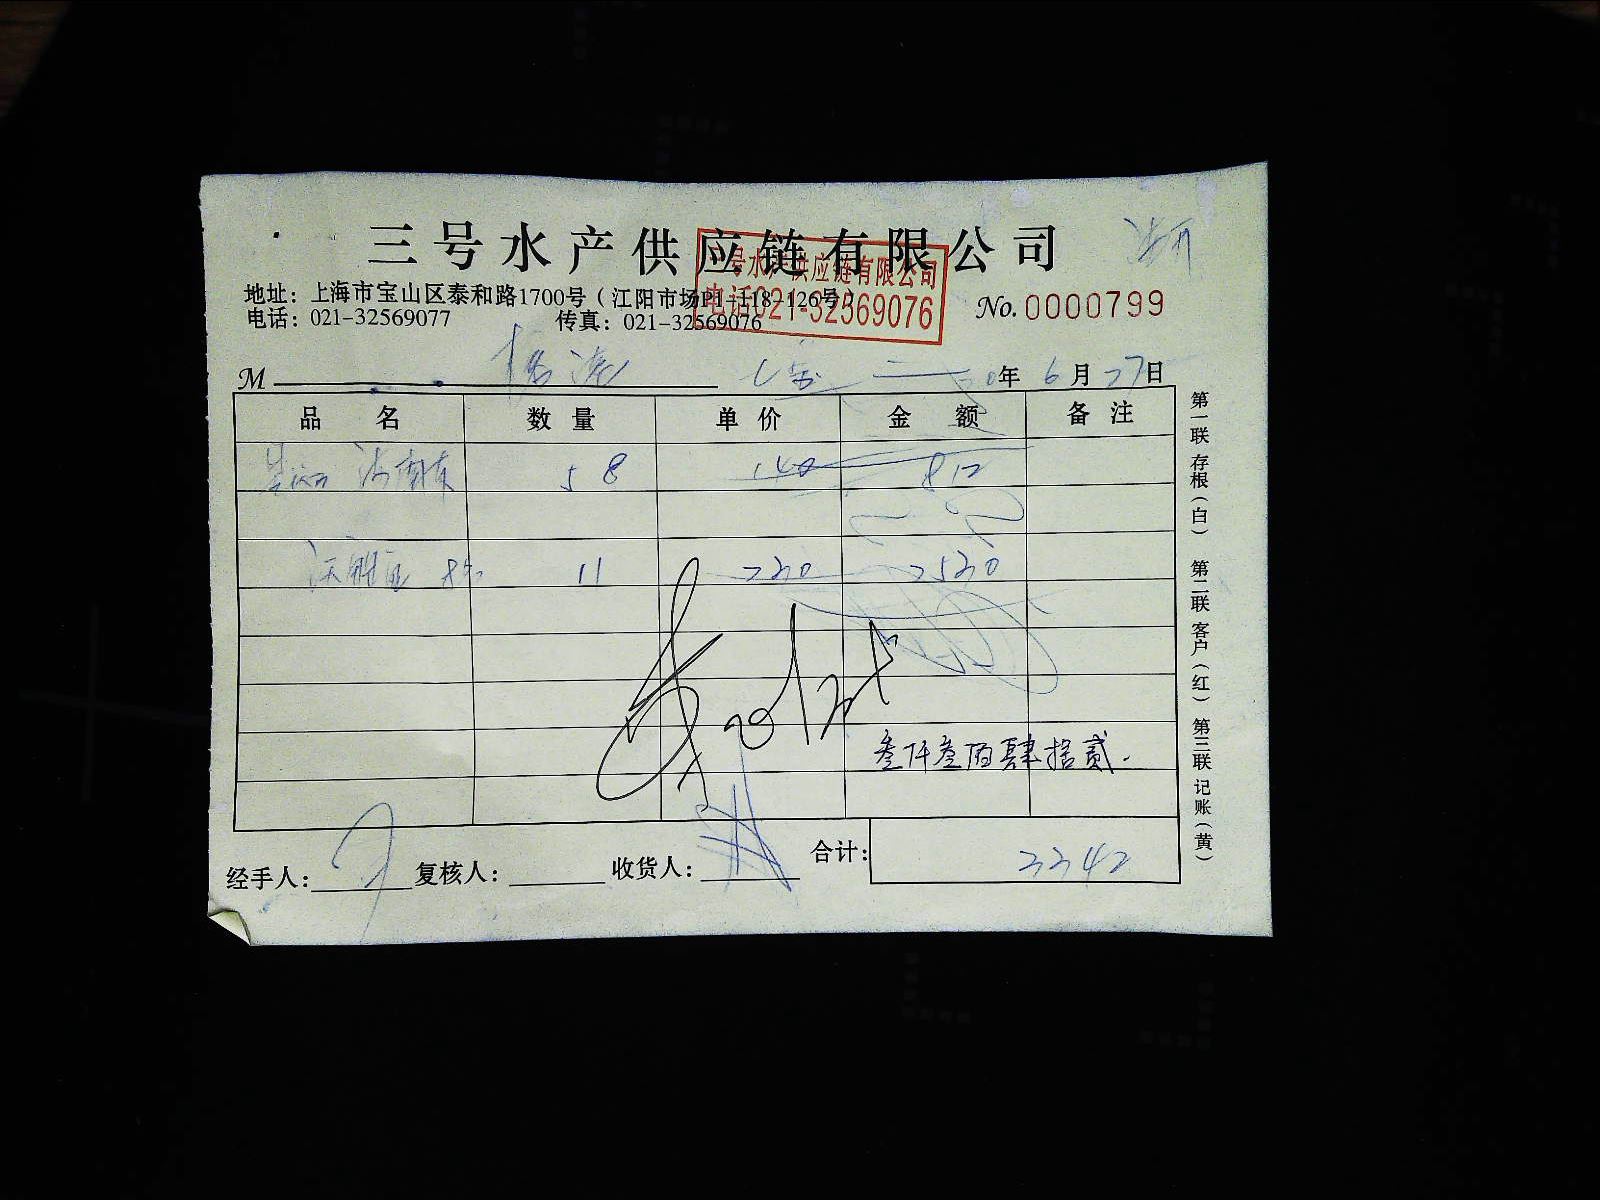 三号水产供应链有限公司
号水产供应链有限公司
电话021-32569076
地址：上海市宝山区泰和路1700号（江阳市场P1-118-126号）
No.0000799
电话：021-32569077 传真：021-32569076
M 年 6 月 27 日
品 名 数 量 单 价 金 额 备 注
5 8 140 812
11 230 2530
叁仟叁佰肆拾贰.
经手人： 复核人： 收货人： 合计： 3342
第一联 存根（白） 第二联 客户（红） 第三联 记账（黄）